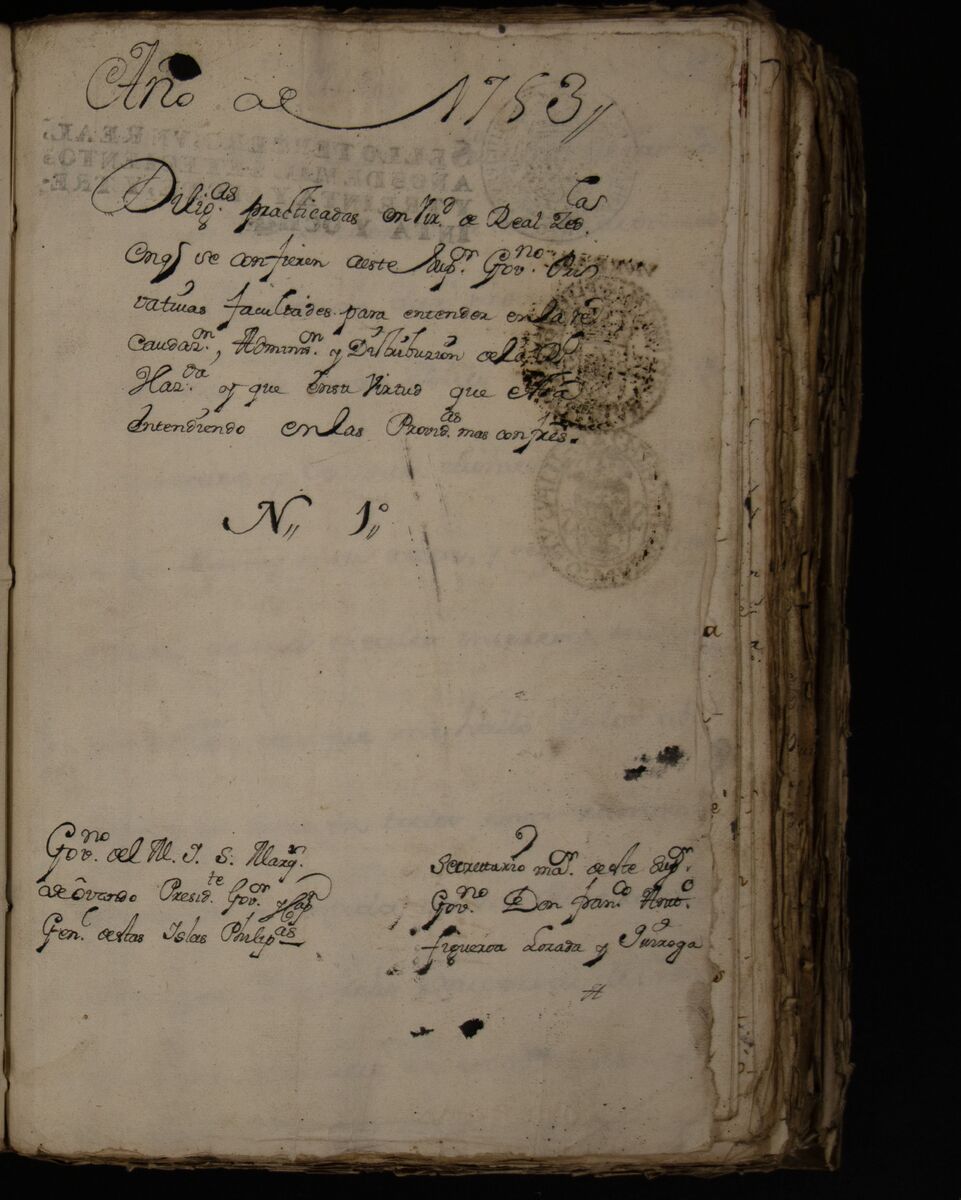 Año de 1753,,
Dilig.as practicadas en vir.d de Real Zed.las
en q.e se confieren a este Sup.or Gov.no Pri
vativas facultades para entender en la re
caudaz.on, Adminis.on y Distribuzion de la Rl
Haz.da y que en su Virtud que
entendiendo en las Provid.as mas
N,, 1,,o
Gov.no del M. I. S. Marq.s
de Ovando Presid.te Gov.or y Cap
Gen.l de estas Islas Philip.as
Secrettario ma.or de este Sup.or
Gov.no Don Fran.co Anto.
Figueroa Lozada y Quiroga